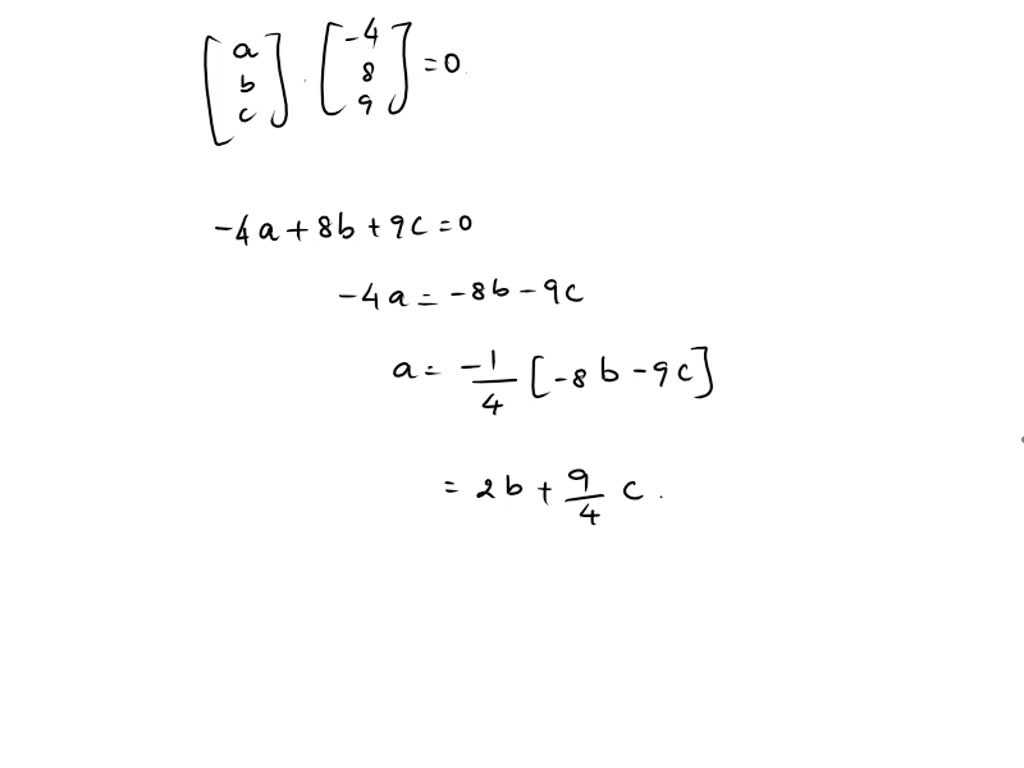 [a b c] · [-4 8 9] = 0
-4a + 8b + 9c = 0
-4a = -8b - 9c
a = -1/4 [-8b - 9c]
= 2b + 9/4 c.